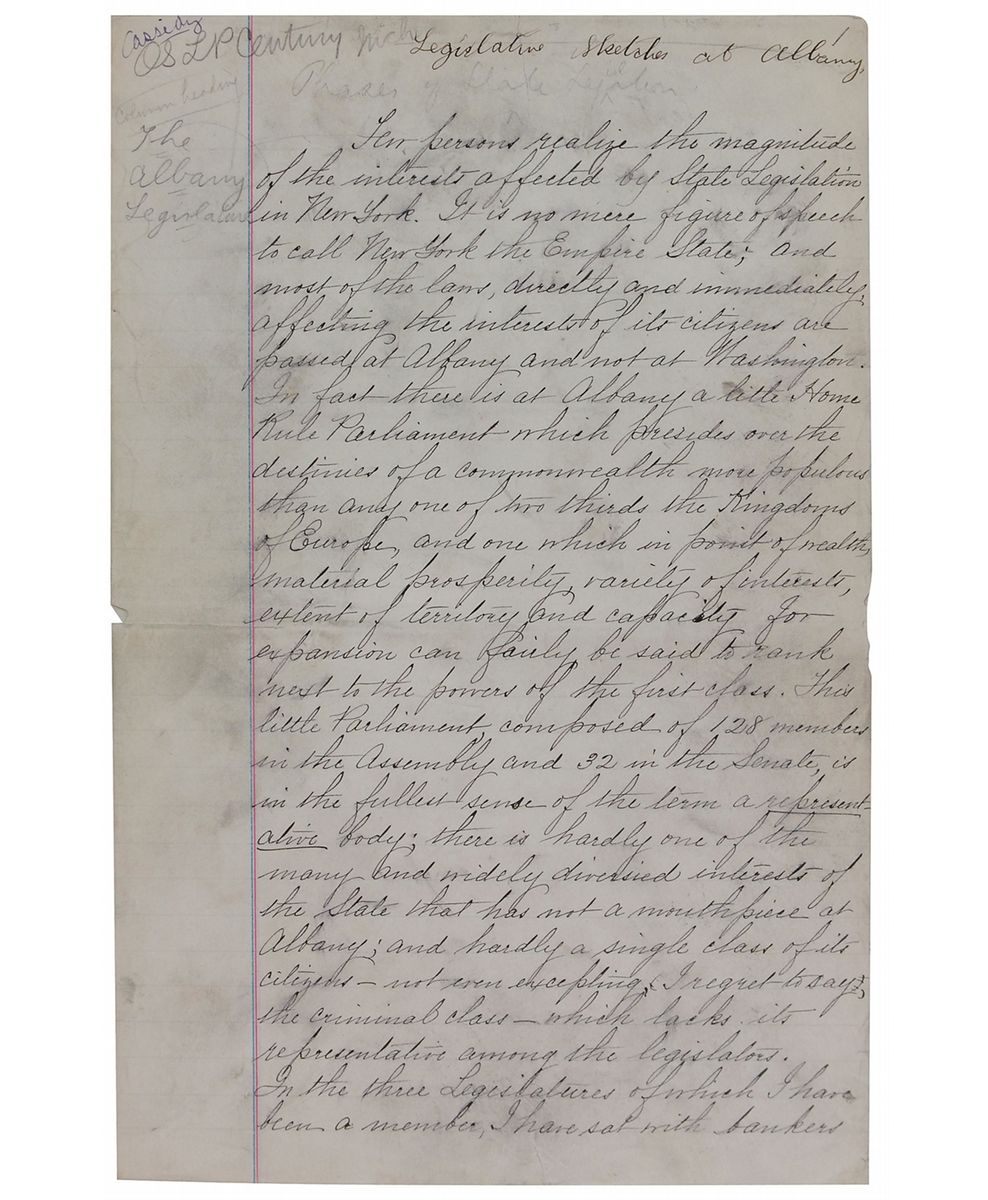 Cassidy
OS LP Century
Legislative Sketches at Albany,
1
Phases of State Legislation
Column heading
The
Albany
Legislature
Few persons realize the magnitude
of the interests affected by State Legislation
in New York. It is no mere figure of speech
to call New York the Empire State; and
most of the laws, directly and immediately,
affecting the interests of its citizens are
passed at Albany and not at Washington.
In fact there is at Albany a little Home
Rule Parliament which presides over the
destinies of a commonwealth more populous
than any one of two thirds the Kingdoms
of Europe, and one which in point of wealth,
material prosperity, variety of interests,
extent of territory and capacity for
expansion can fairly be said to rank
next to the powers of the first class. This
little Parliament, composed of 128 members
in the Assembly and 32 in the Senate, is
in the fullest sense of the term a represent-
ative body; there is hardly one of the
many and widely diversied interests of
the State that has not a mouthpiece at
Albany; and hardly a single class of its
citizens — not even excepting, (I regret to say),
the criminal class — which lacks its
representative among the legislators.
In the three Legislatures of which I have
been a member, I have sat with bankers